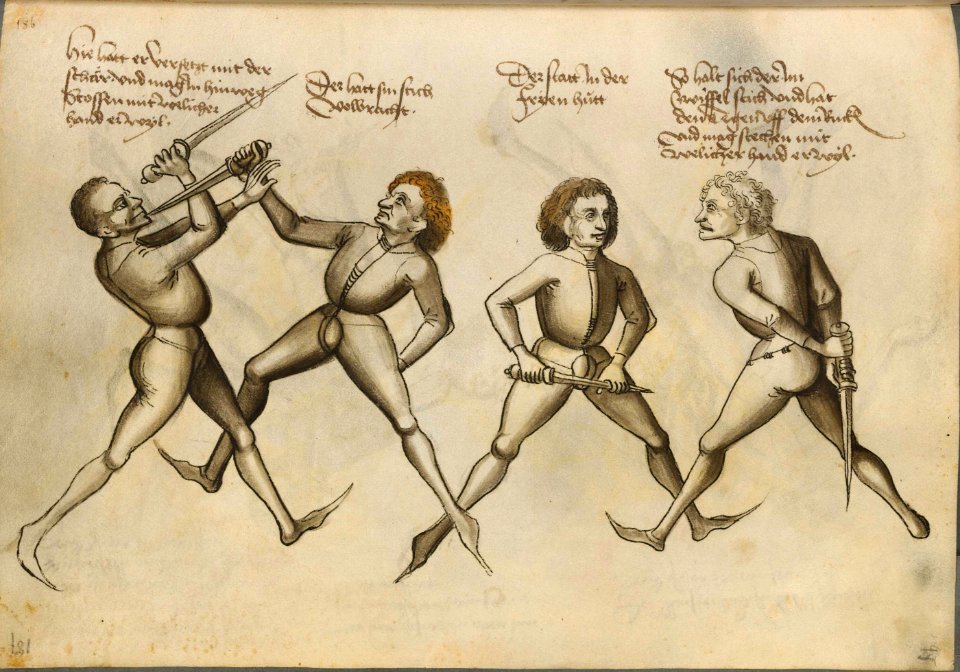 186
Hie hatt er versetzt mit der
schär und mag in hinweg
Stossen mit welicher
hand er wyl.
Der hatt sin stich
Volbracht.
Der statt In der
fryen hůtt
So halt sich der Im
zwyffel stich und hat
den tegen uff dem Ruck
Und mag stechen mit
Welicher hand er wyl.
181